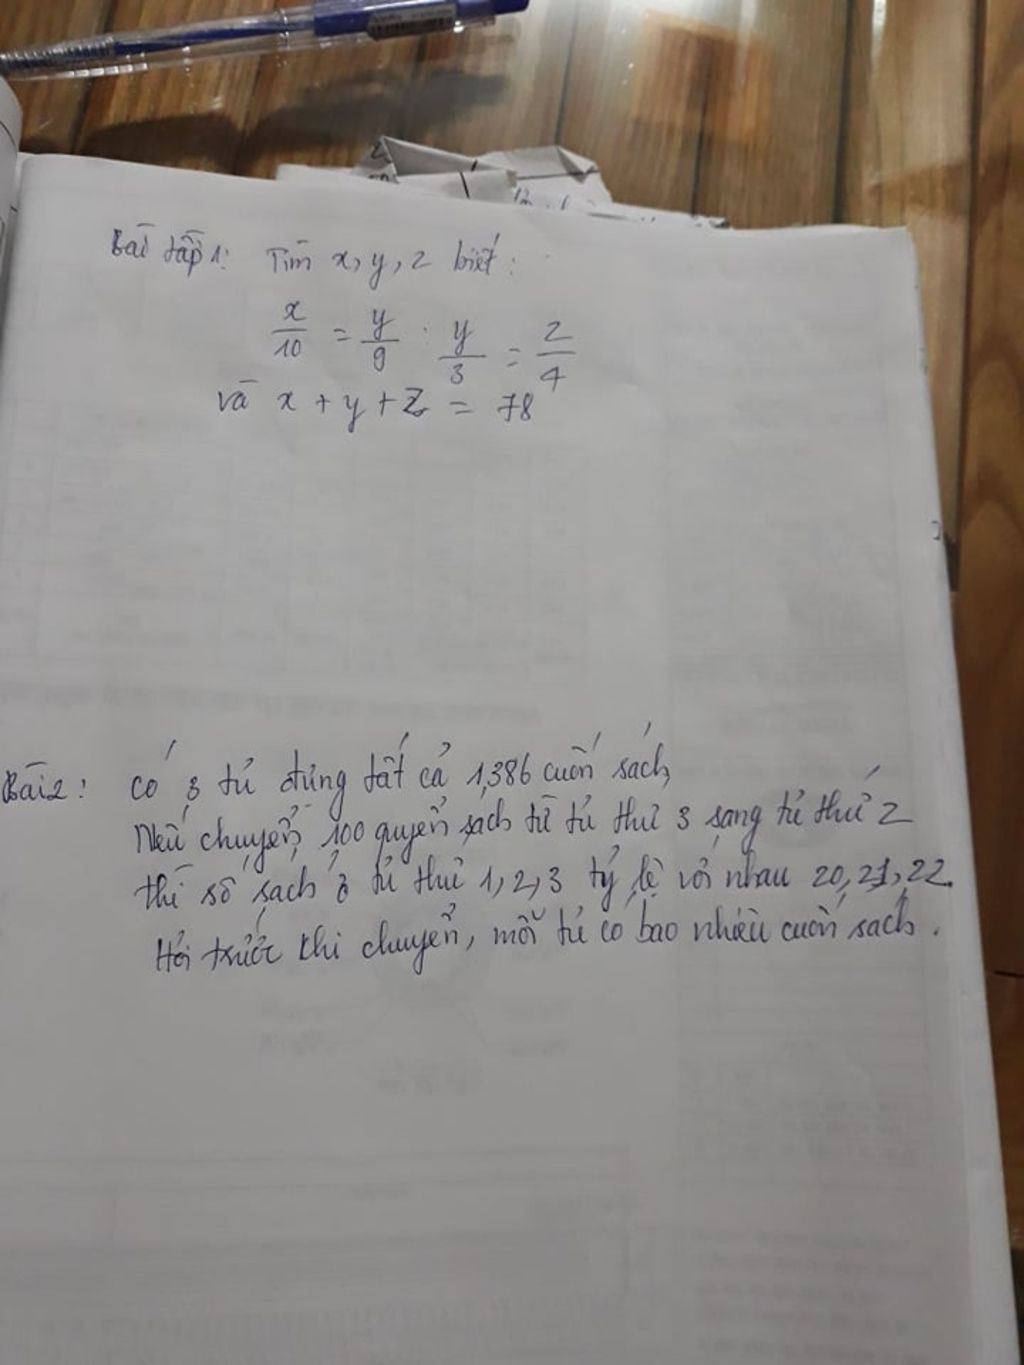 Bài tập 1: Tìm x, y, z biết:
x/10 = y/9 ; y/3 = z/4
và x + y + z = 78
Bài 2: Có 3 tủ đựng tất cả 1,386 cuốn sách,
Nếu chuyển 100 quyển sách từ tủ thứ 3 sang tủ thứ 2
thì số sách ở tủ thứ 1, 2, 3 tỷ lệ với nhau 20, 21, 22.
Hỏi trước khi chuyển, mỗi tủ có bao nhiêu cuốn sách.